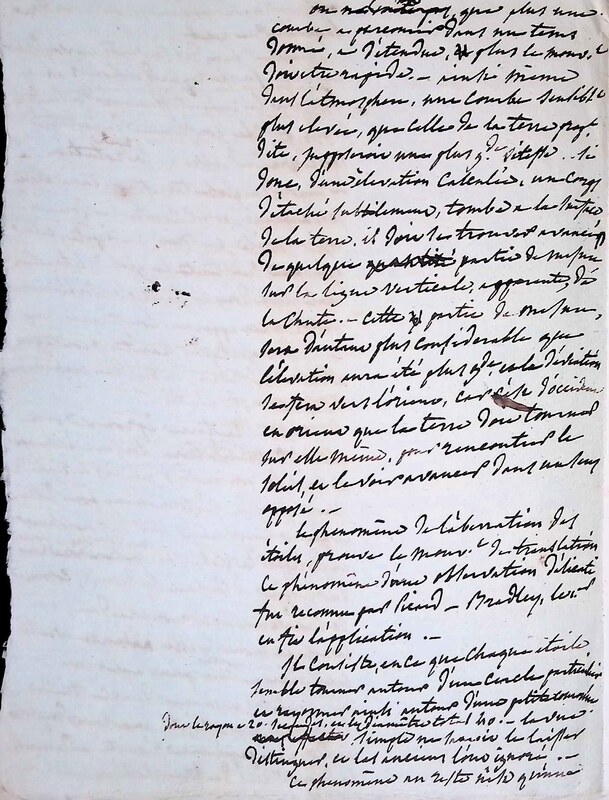 que plus une
courbe a parcourir dans un tems
donné, a d'étendue, plus le mouv.t
doit etre rapide – ainsi même
dans l'atmosphere, une courbe sensible
plus elevée, que celle de la terre
dite, supposeroit une plus gde vitesse. si
donc, d'une élévation calculée, un corps
détaché subitement, tombe a la surface
de la terre, il doit se trouver avancé
de quelque partie de mesure
sur la ligne verticale, apparente, de
la chute. – cette partie de mesure,
sera d'autant plus considerable que
l'élevation aura été plus gde et la déviation
se fera vers l'orient, car c'est d'occident
en orient que la terre doit tourner
sur elle même, pour rencontrer le
soleil, et le voir avancer dans un sens
opposé. –
le phenomène de l'aberration des
étoiles, prouve le mouv.t de translation
ce phénomène d'une observation délicate
fut reconnu par Picard – Bradley,
en fit l'application. –
Il consiste, en ce que chaque étoile
semble tourner autour d'un cercle particulier
et rayonner ainsi autour d'une petite
dont le rayon a 20. secondes, et le diamètre total 40. – la vue
simple ne sauroit le laisser
distinguer, et les anciens l'ont ignoré. –
ce phenomène au reste